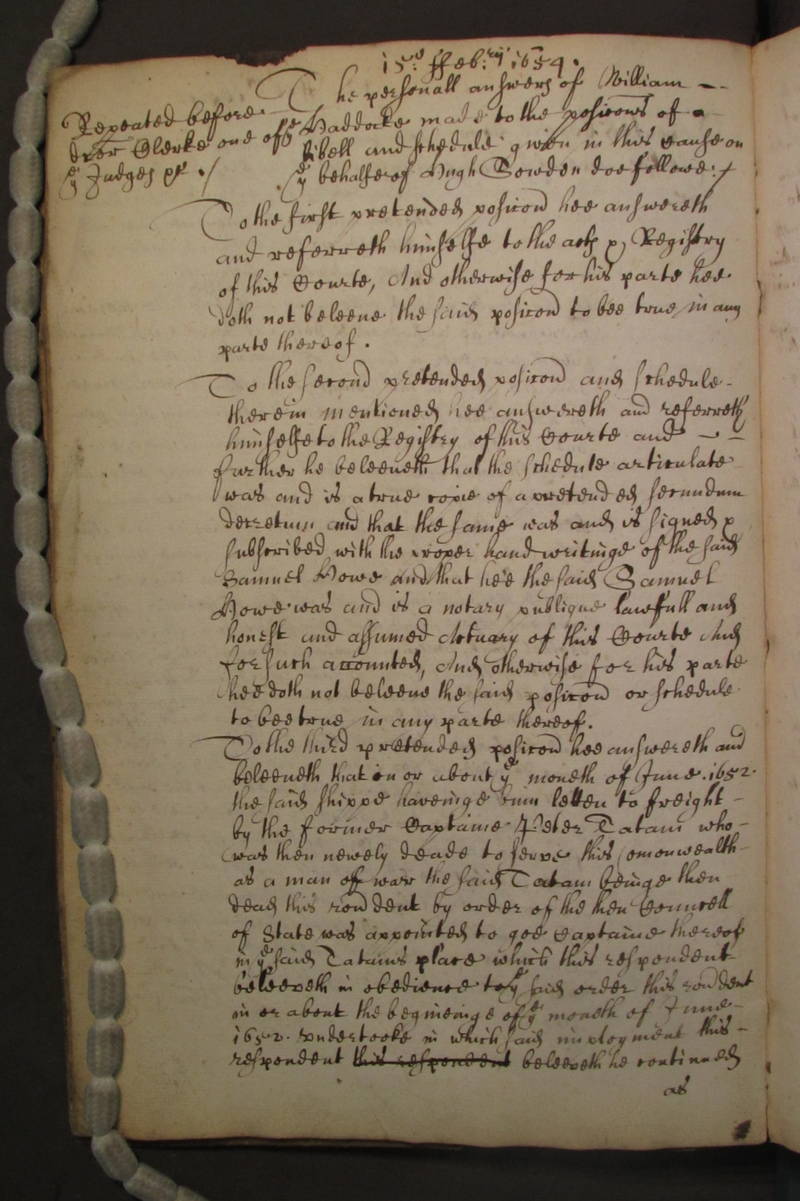 15º: ffeb:ry 1654.
The personall answers of William
Haddocke made to the posicons of a
libell and schedule given in this cause on
ye behalfe of Hugh Bowden doe followe:/
Repeated before
doctor Clerke one of
ye Judges pnt ./
To the first pretended posicon hee answereth
and referreth himselfe to the acts & Registry
of this Courte, And otherwise for his parte hee
doth not beleeve the said posicon to bee true in any
parte thereof.
To the second pretended posicon and schedule
therein mentioned hee answereth and referreth
himselfe to the Registry of this Courte and
further he beleeveth that the schedule articulate
was and is a true copie of a pretended secundum
decretum and that the same was and is signed &
subscribed with the proper hand writinge of the said
Samuel Howe And that hee the said Samuel
Howe was and is a notary publique lawfull and
honest and assumed Actuary of this Courte And
for such accounted, And otherwise for his parte
hee doth not beleeve the said posicon or schedule
to bee true in any parte thereof.
To the third pretended posicon hee answereth and
beleeveth that in or about ye moneth of June .1652.
the said shippe haveinge bin letten to freight
by the former Captaine Peter Tatam who
was then newly deade to serve this Comonwealth
as a man off warr the said Tatam beinge then
dead this rondent by order of the then Councell
of State was appointed to goe Captaine thereof
in ye said Tatams place which this respondent
beleeveth in obedience to ye said order this rondent
in or about the begineinge of ye moneth of June
1652. undertooke in which said imployment this
respondent this respondent beleeveth he continued
as